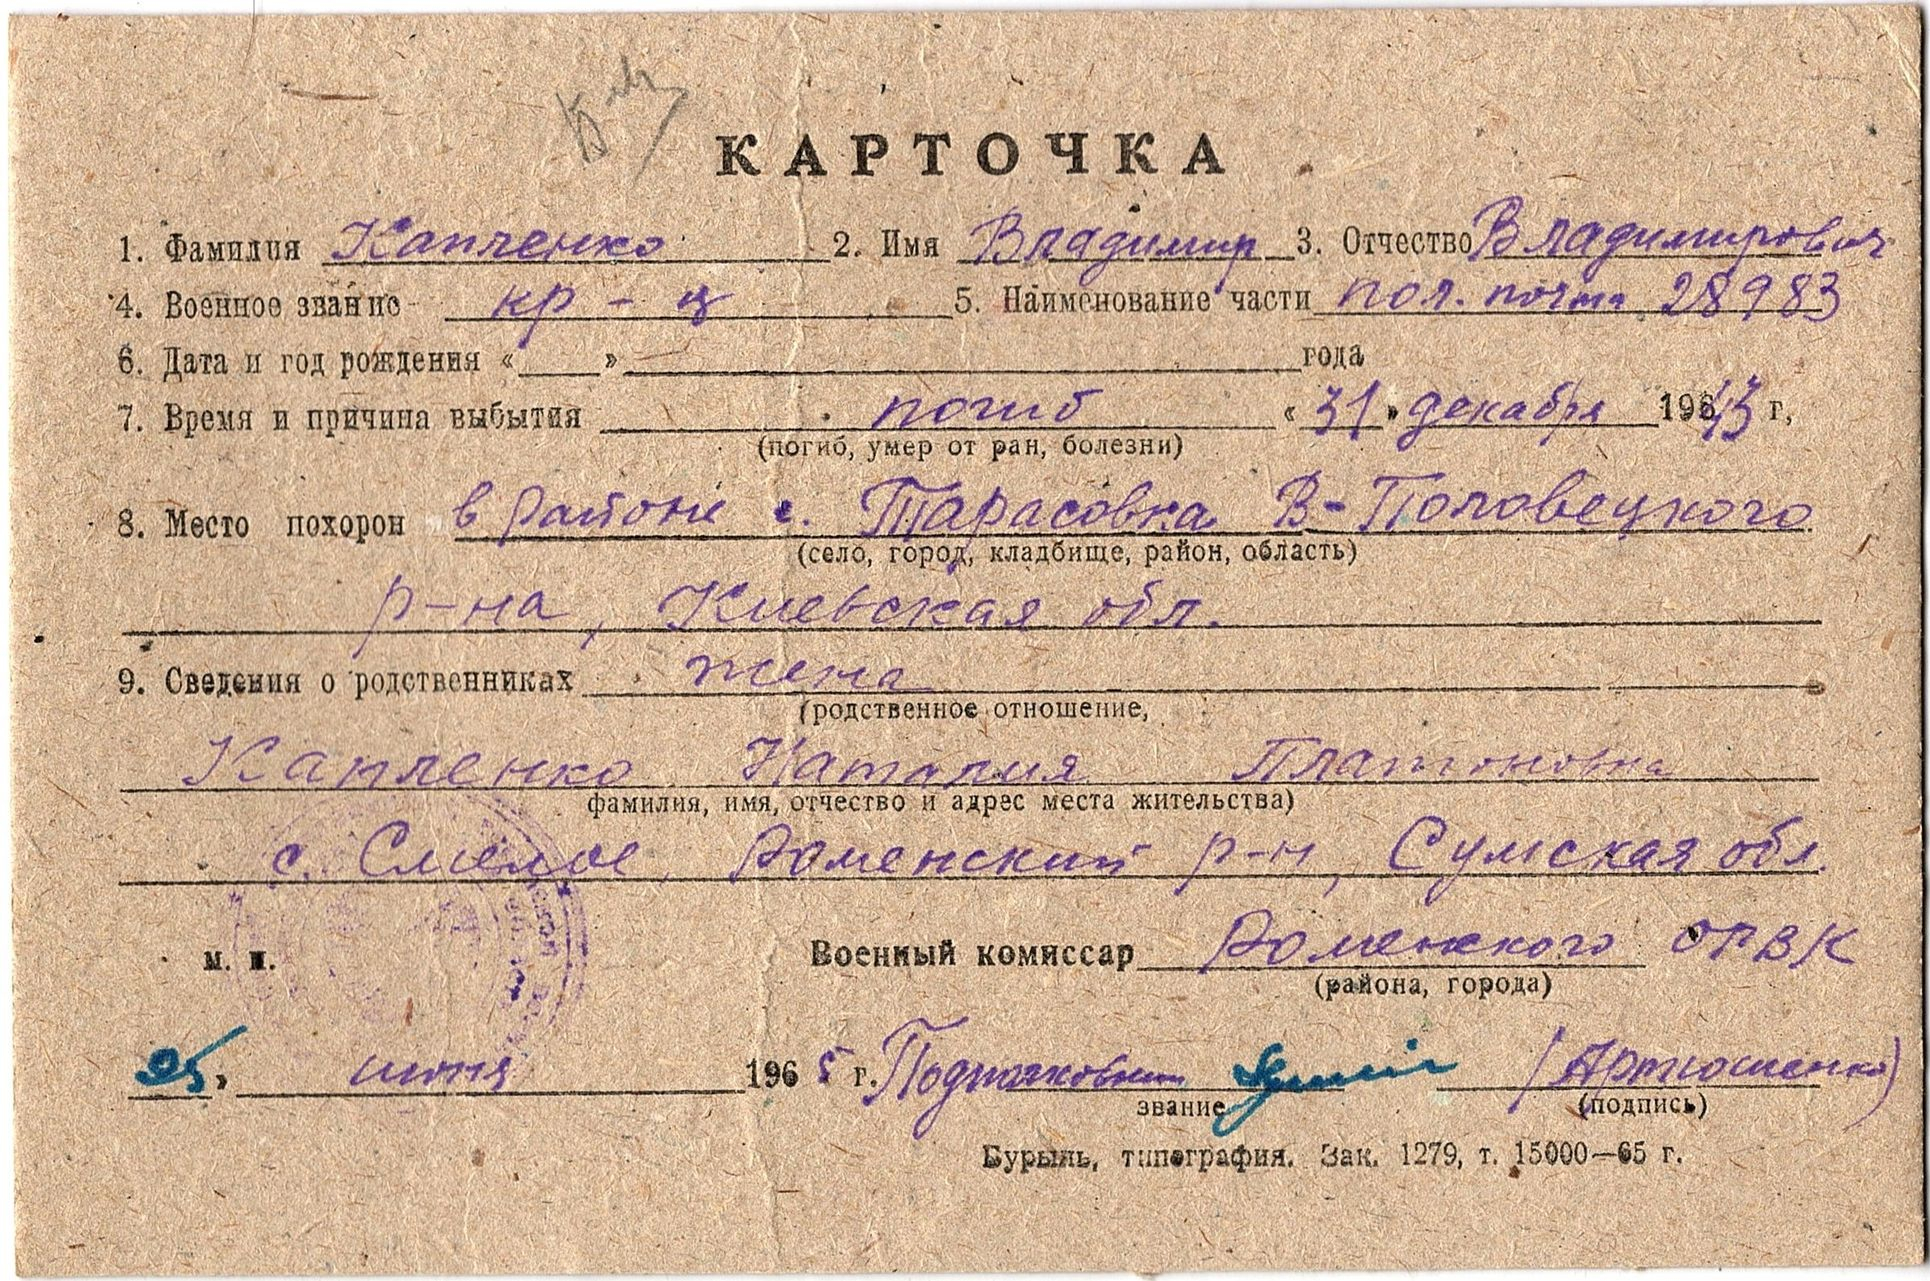 КАРТОЧКА
1. Фамилия Капленко 2. Имя Владимир 3. Отчество Владимирович
4. Военное звание кр-ц 5. Наименование части пол. почта 28983
6. Дата и год рождения « » года
7. Время и причина выбытия погиб «31» декабря 1943 г,
(погиб, умер от ран, болезни)
8. Место похорон в районе с. Тарасовка В-Половецкого
(село, город, кладбище, район, область)
р-на, Киевская обл.
9. Сведения о родственниках жена
(родственное отношение,
Капленко Наталия Платоновна
фамилия, имя, отчество и адрес места жительства)
с. Смелое, Роменский р-н, Сумская обл.
м. п. Военный комиссар Роменского ОРВК
(района, города)
25» июня 1965 г. Подполковник (Артюшенко)
звание (подпись)
Бурынь, типография. Зак. 1279, т. 15000—65 г.